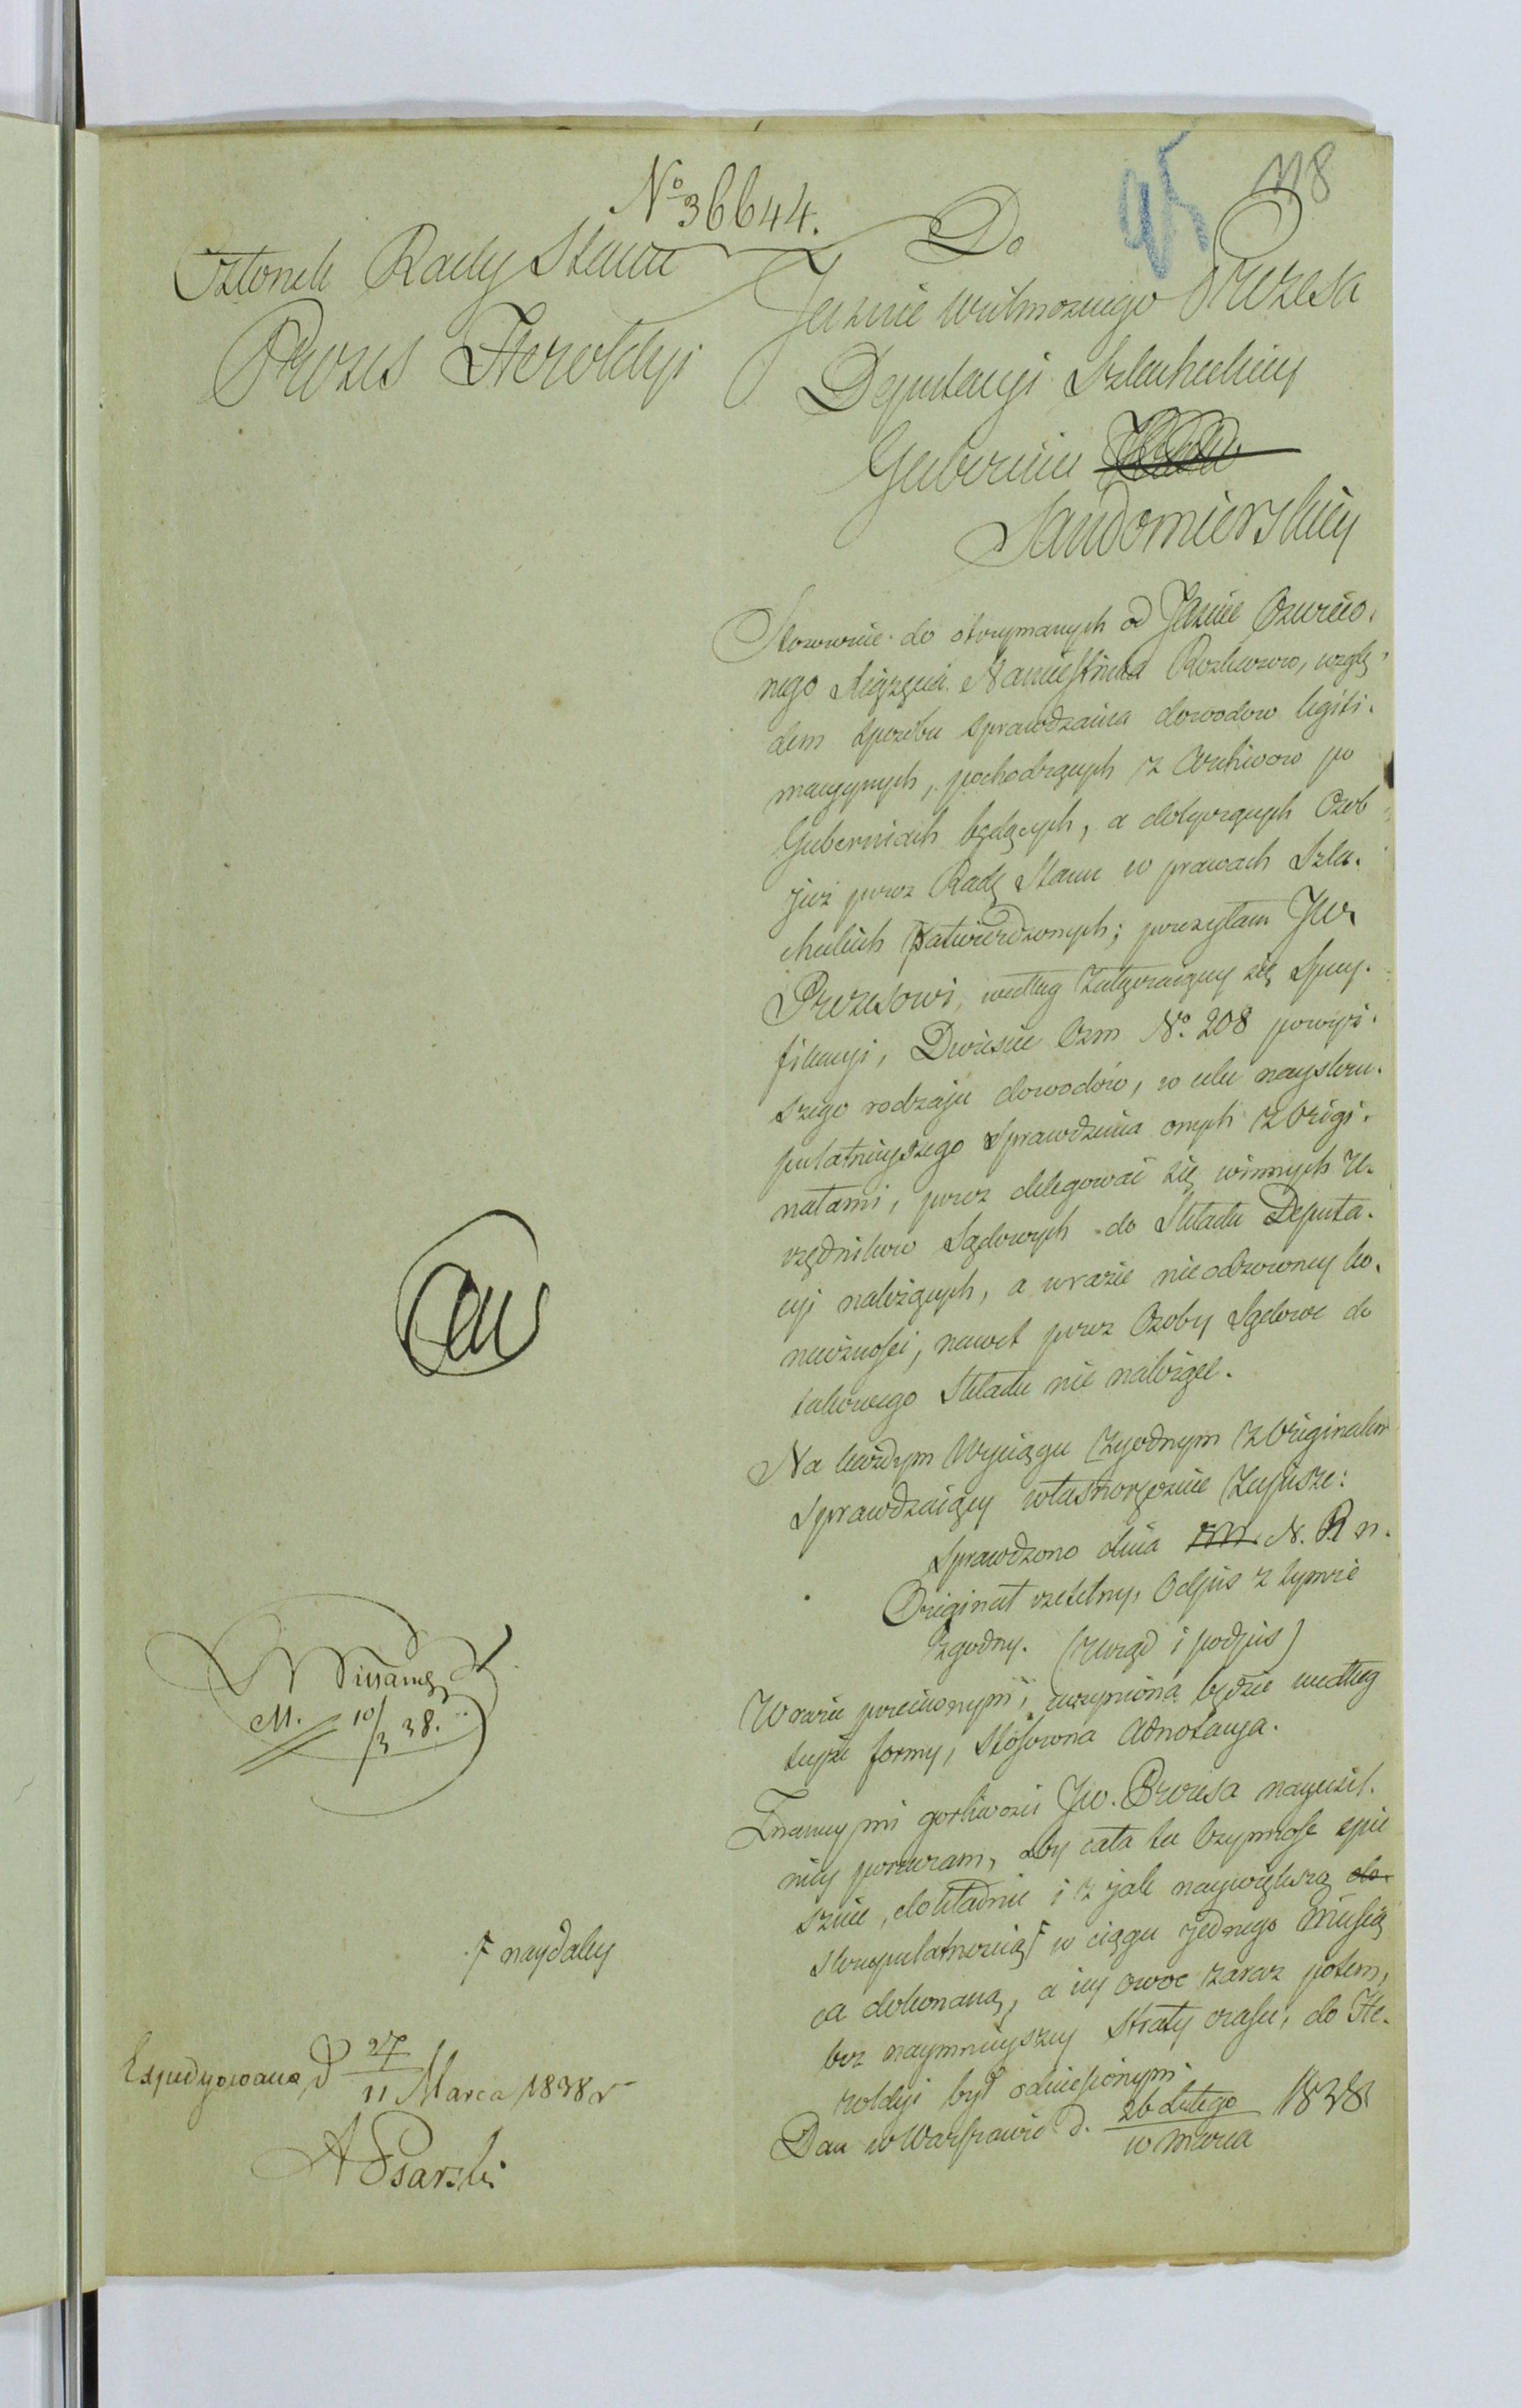 118
45
Nº 36644.
Członek Rady Stanu
Prezes Heroldyi
Do
Jaśnie Wielmożnego Prezesa
Deputacyi Szlacheckiey
Gubernii
Sandomierskiey
Stosownie do otrzymanych od Jaśnie Oświeco-
nego Xiążęcia Namiestnika Rozkazow, wzglę-
dem sposobu sprawdzania dowodow legiti-
macyynych, pochodzących z Archiwow po
Guberniach będących, a dotyczących Osob
już przez Radę Stanu w prawach Szla-
checkich zatwierdzonych; przesyłam JW.
Prezesowi, według załączaiącey się specy-
fikacyi, Dwieście Osm Nº 208 powyż-
szego rodzaju dowodów, w celu nayskru-
pulatnieyszego sprawdzenia onych z Origi-
nałami, przez delegować się winnych U-
rzędnikow Sądowych do Składu Deputa-
cyi należących, a w razie nieodzowney ko-
nieczności, nawet przez Osoby Sądowe do
takowego Składu nie należące.
Na każdym Wyciągu zgodnym z Originałem
sprawdzaiący własnoręcznie zapisze:
Sprawdzono dnia N. R n.
Originał rzetelny, Odpis z tymże
zgodny. (urząd i podpis)
W razie przeciwnym, uczyniona będzie według
teyże formy, stosowna adnotacya.
Znaney mi gorliwości JW. Prezesa nayusil-
niey poruczam, aby cała ta Czynność spie
sznie, dokładnie i z jak naywiększą do-
skrupulatnością F w ciągu jednego Miesią
ca dokonaną, a iey owoc zaraz potem,
bez naymnieyszey straty czasu, do He-
roldyi był odniesionym.
Dan w Warszawie d. 26 Lutego / 10 Marca 1838
M. 10/3 38.
F naydaley
Expedyowano d 27 / 11 Marca 1838 r
A Psarski